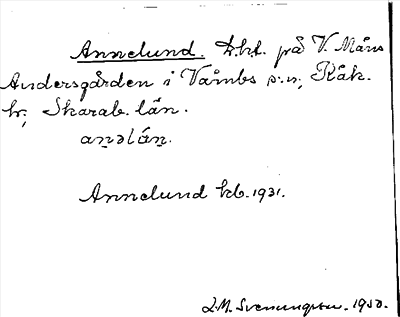 Annelund. Lht. på V. Måns
Andersgården i Våmbs s:n, Kåk.
hr, Skarab. län.
anəlún.
Annelund kb. 1931.
L.M. Svenungsson. 1950.